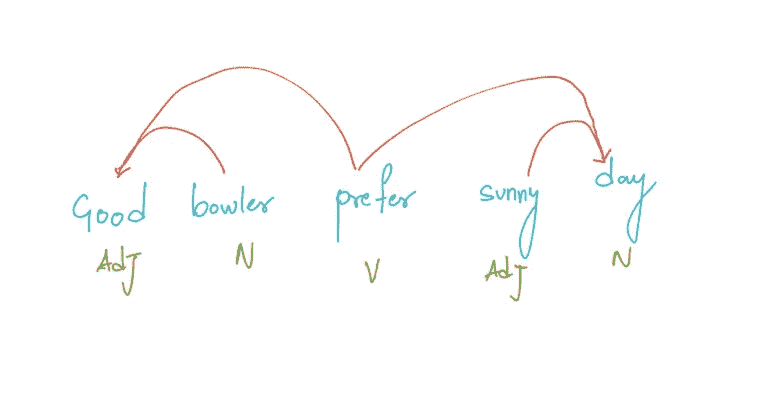 Good bowler prefer sunny day
Adj N V Adj N